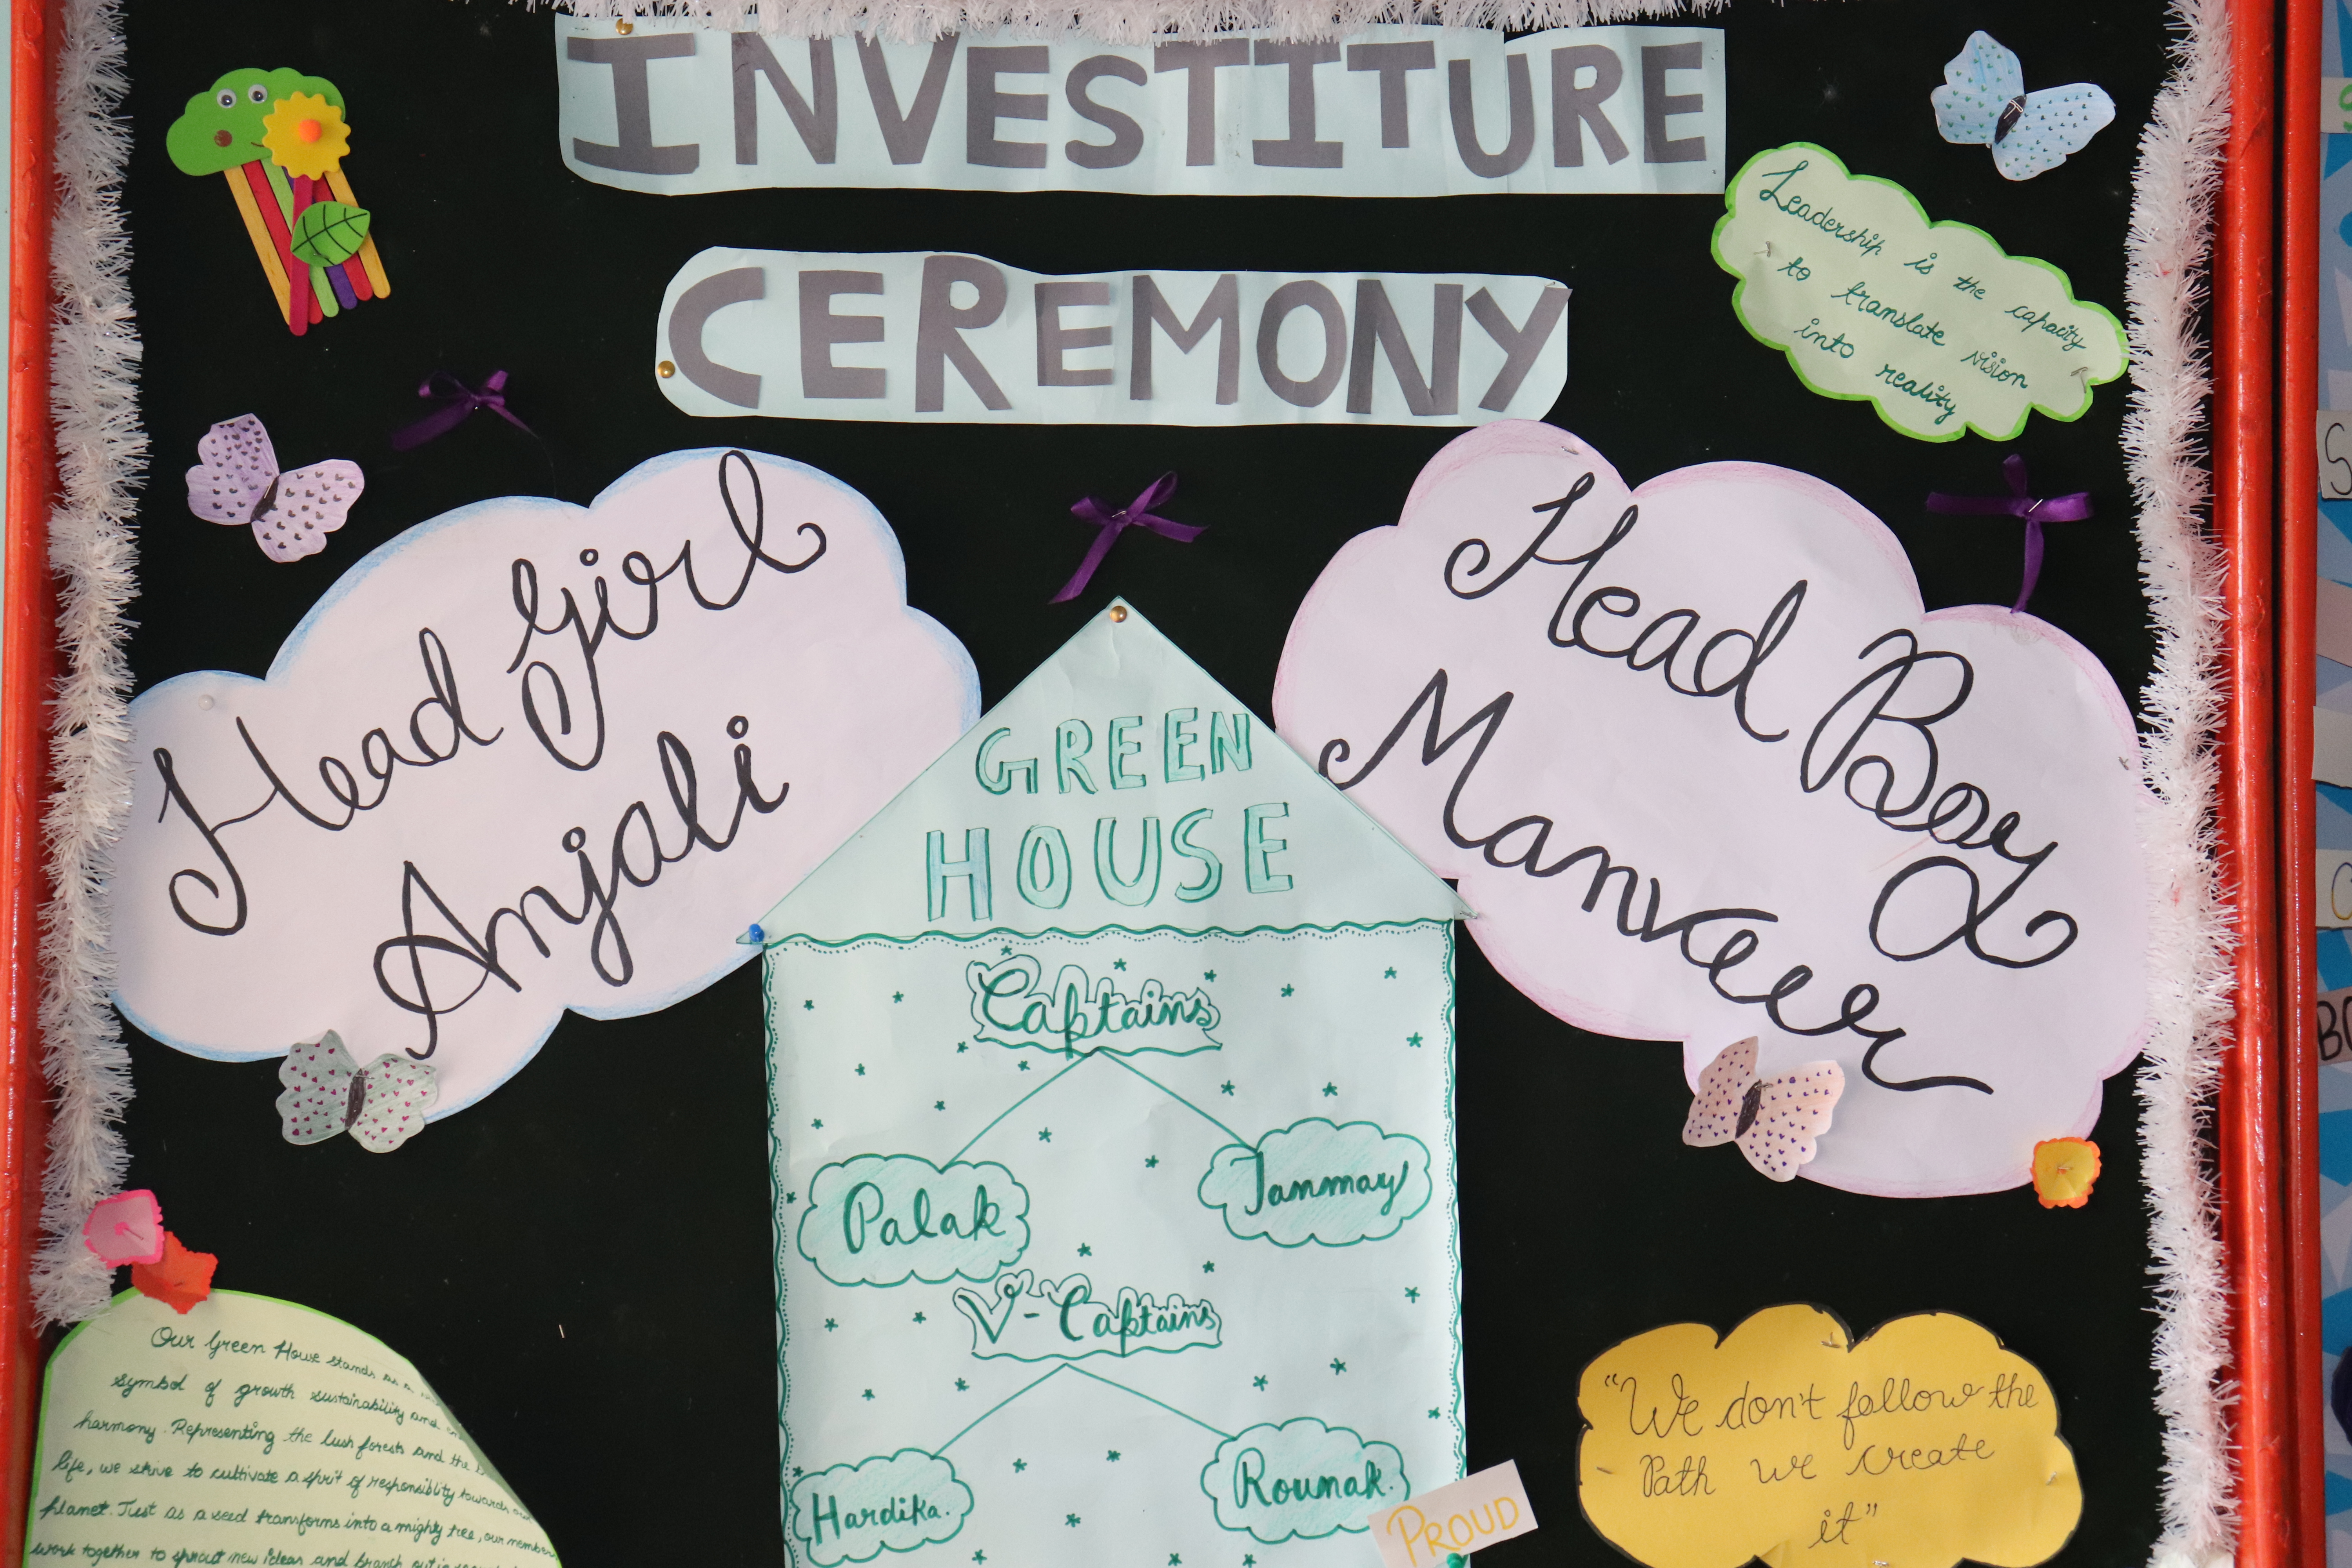 INVESTITURE
CEREMONY
Leadership is the capacity
to translate vision
into reality
Head Girl
Anjali
Head Boy
Manveer
GREEN
HOUSE
Captains
Palak
Tanmay
V-Captains
Hardika.
Rounak.
PROUD
Our Green House stands as a
symbol of growth sustainability and
harmony. Representing the lush forests and the
life, we strive to cultivate a spirit of responsiblity towards our
planet. Just as a seed transforms into a mighty tree, our member
work together to sprout new ideas and branch out in
"We don't follow the
Path we create
it"